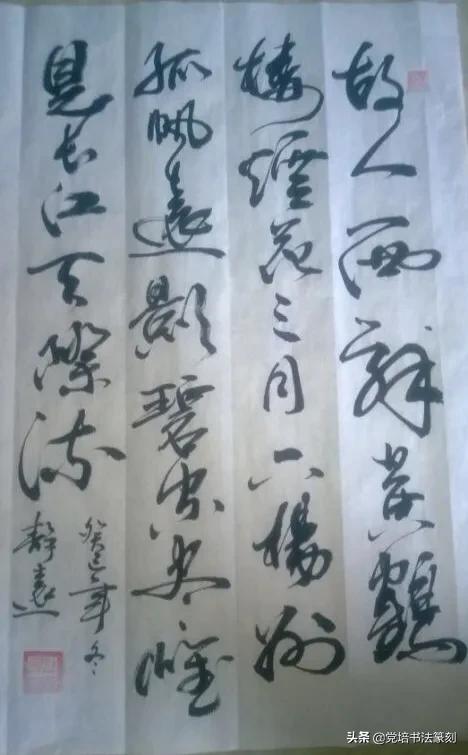 故人西辞黄鶴
楼煙花三月下楊州
孤帆遠影碧空尽唯
見长江天際流
癸巳年冬
静遠
头条 @党培书法篆刻